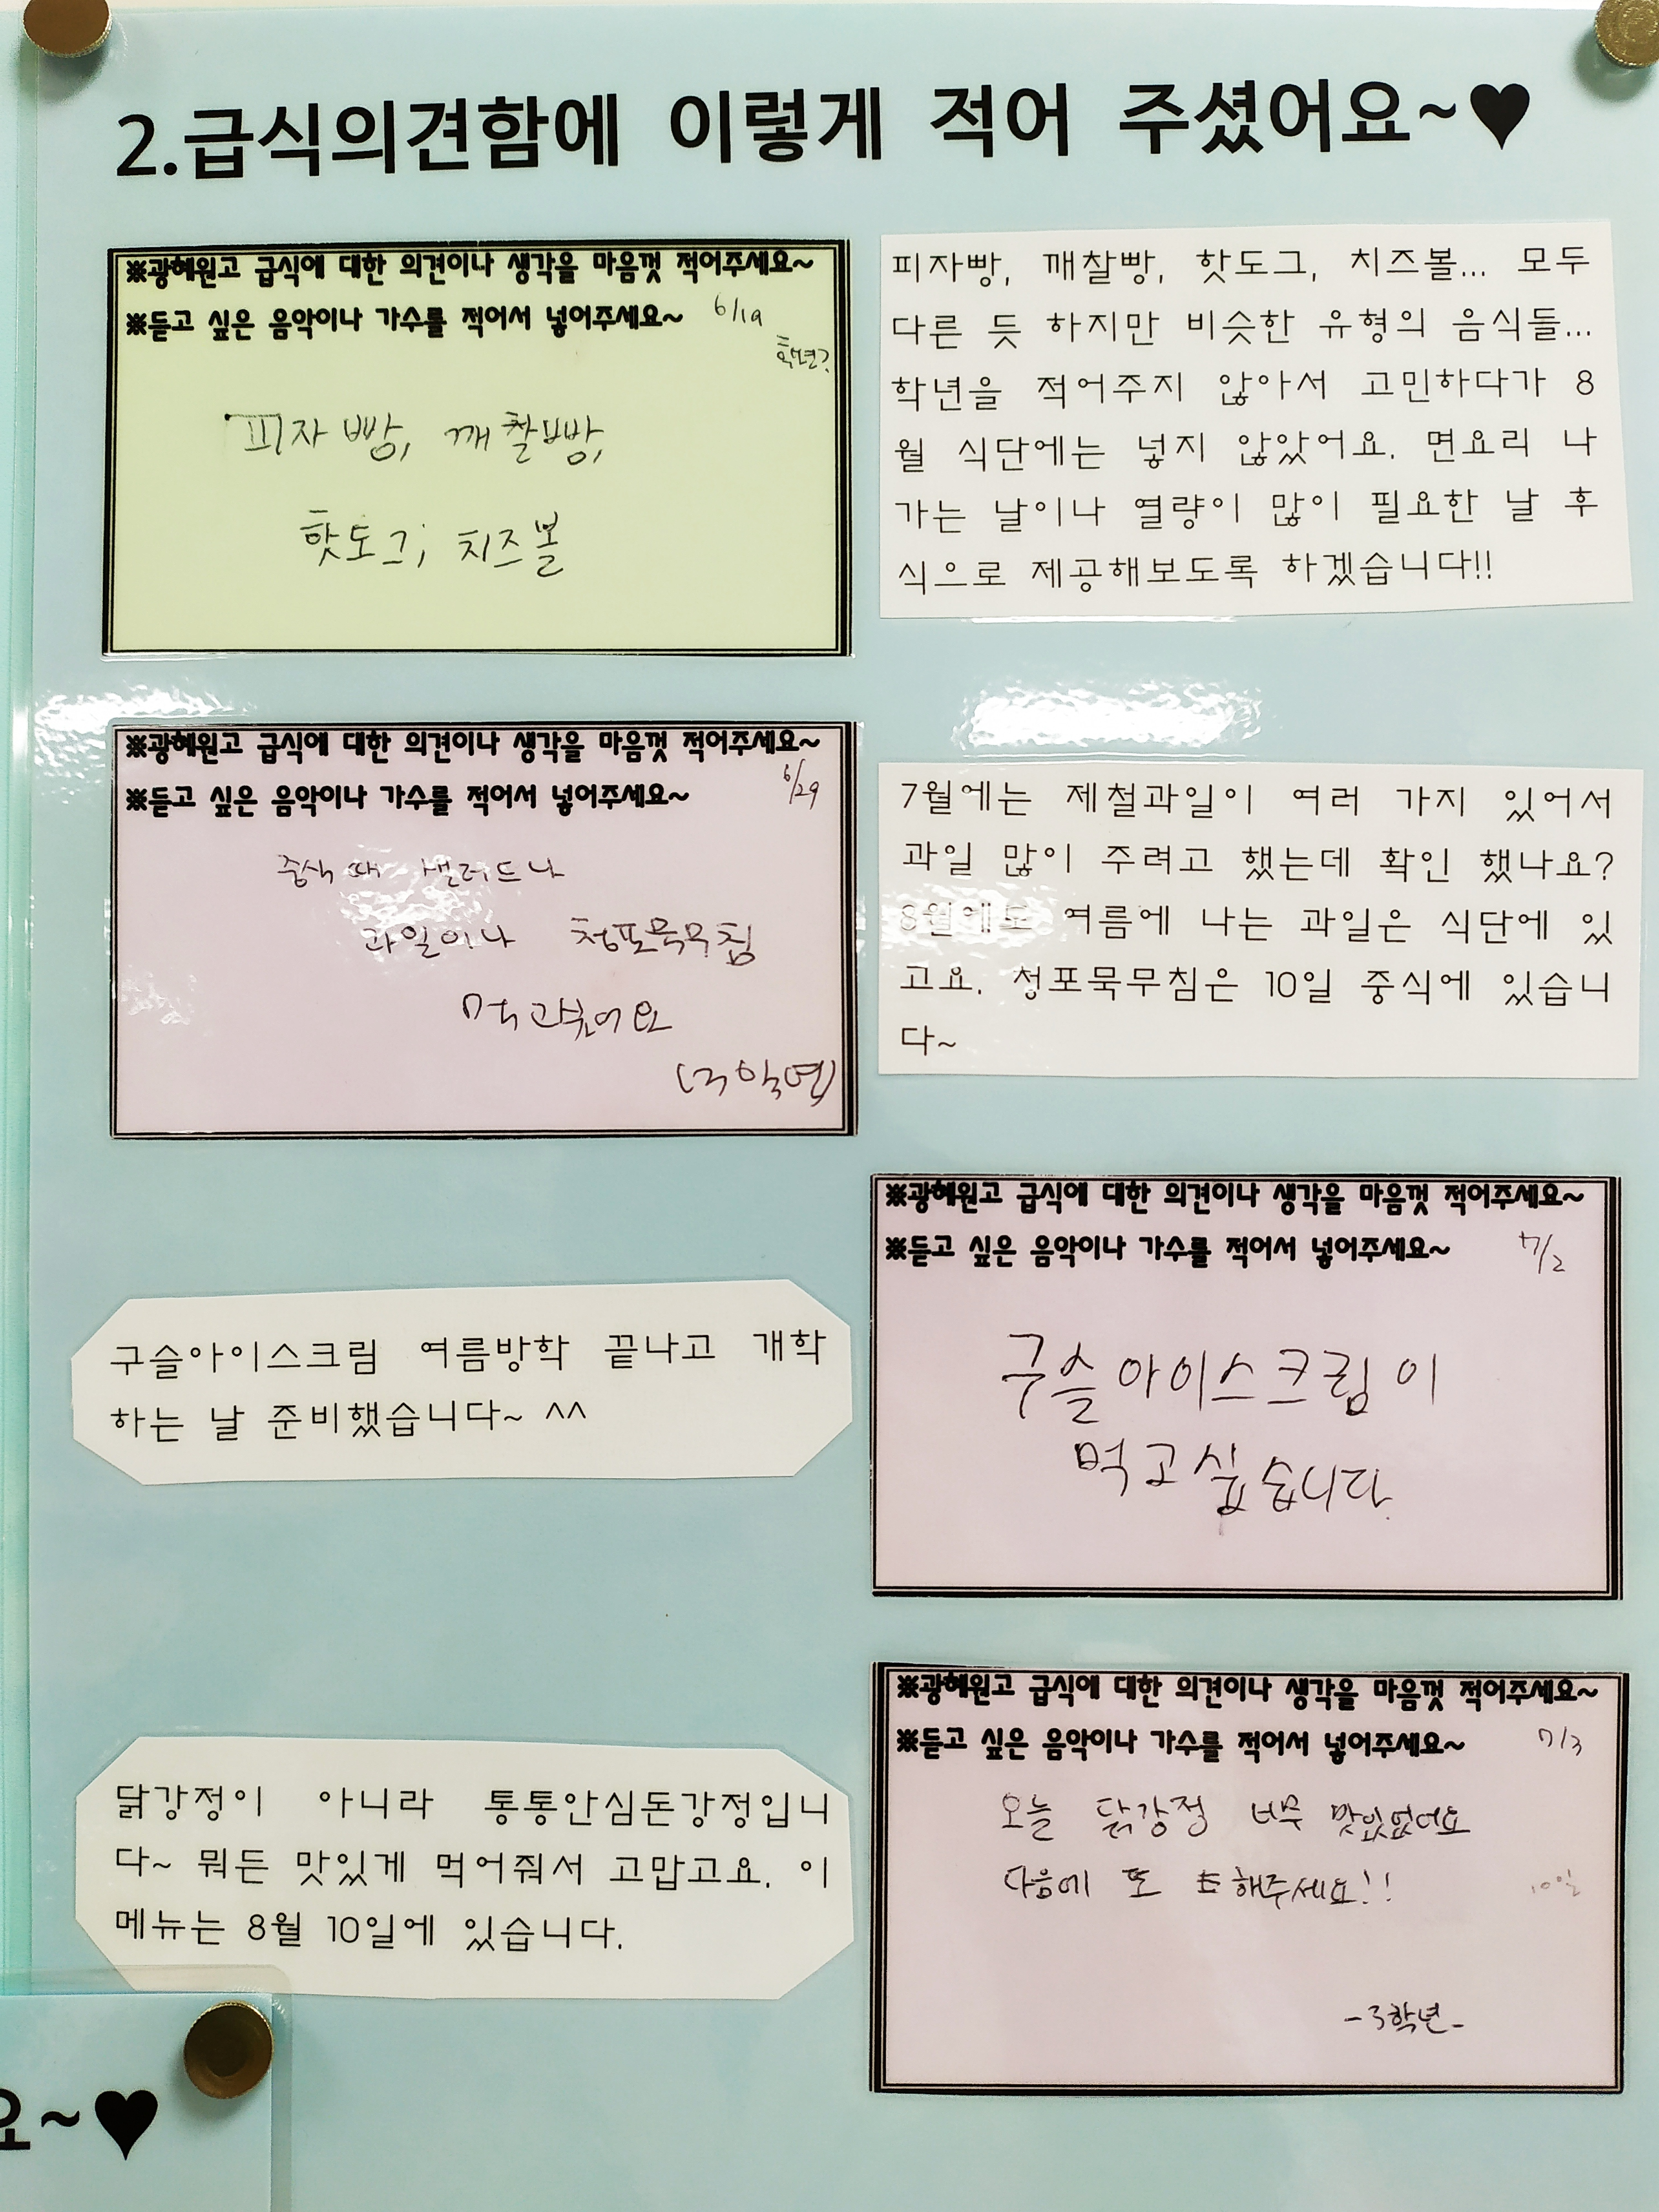 2.급식의견함에 이렇게 적어 주셨어요~♥
※광혜원고 급식에 대한 의견이나 생각을 마음껏 적어주세요~
※듣고 싶은 음악이나 가수를 적어서 넣어주세요~ 6/19
학년?
피자빵, 깨찰빵,
핫도그, 치즈볼
피자빵, 깨찰빵, 핫도그, 치즈볼... 모두
다른 듯 하지만 비슷한 유형의 음식들...
학년을 적어주지 않아서 고민하다가 8
월 식단에는 넣지 않았어요. 면요리 나
가는 날이나 열량이 많이 필요한 날 후
식으로 제공해보도록 하겠습니다!!
※광혜원고 급식에 대한 의견이나 생각을 마음껏 적어주세요~
※듣고 싶은 음악이나 가수를 적어서 넣어주세요~ 6/29
중식 때 샐러드나
과일이나 청포묵무침
(3학년)
7월에는 제철과일이 여러 가지 있어서
과일 많이 주려고 했는데 확인 했나요?
8월에도 여름에 나는 과일은 식단에 있
고요. 청포묵무침은 10일 중식에 있습니
다~
※광혜원고 급식에 대한 의견이나 생각을 마음껏 적어주세요~
※듣고 싶은 음악이나 가수를 적어서 넣어주세요~ 7/2
구슬아이스크림이
먹고싶습니다.
구슬아이스크림 여름방학 끝나고 개학
하는 날 준비했습니다~ ^^
※광혜원고 급식에 대한 의견이나 생각을 마음껏 적어주세요~
※듣고 싶은 음악이나 가수를 적어서 넣어주세요~ 7/3
오늘 닭강정 너무 맛있었어요
다음에 또 해주세요!!
10일
-3학년-
닭강정이 아니라 통통안심돈강정입니
다~ 뭐든 맛있게 먹어줘서 고맙고요. 이
메뉴는 8월 10일에 있습니다.
요~♥